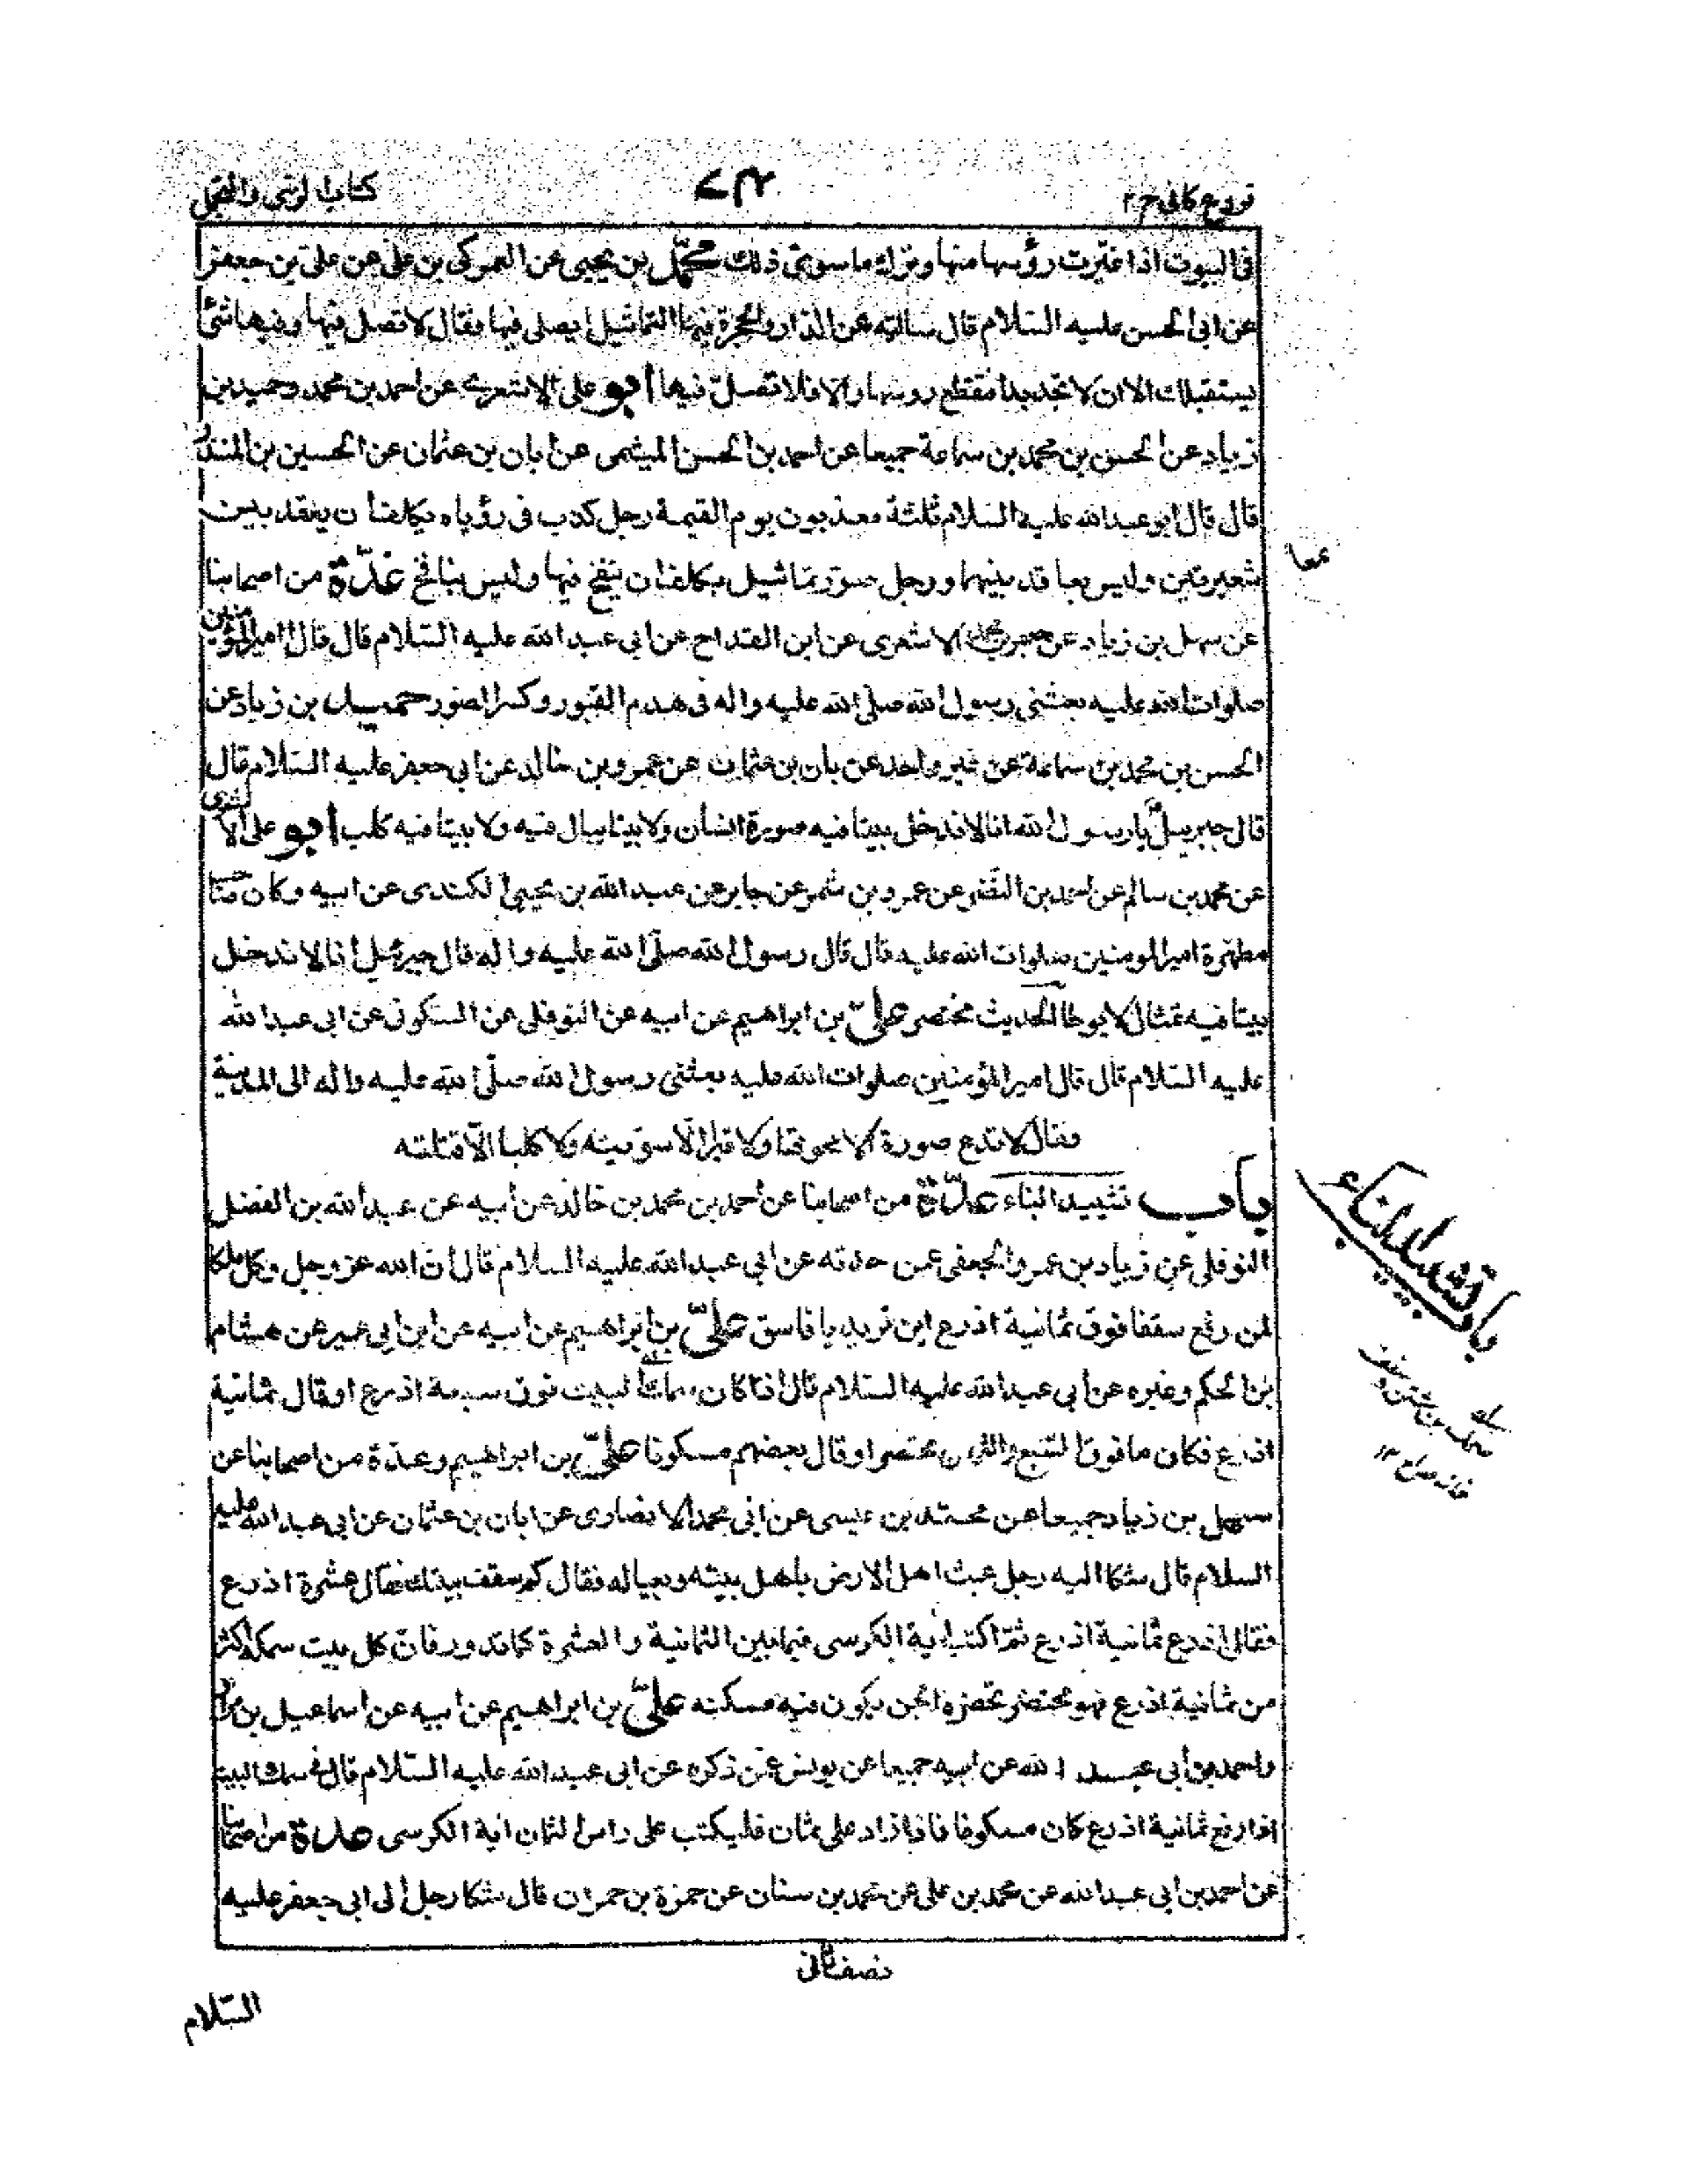 فروع کافی ج ۲
کتاب الزی والتجمل
فی البیوت اذا غیّرت رؤسها منها وترک ما سوی ذلک محمّد بن یحیی عن العمرکی بن علی عن علی بن جعفر
عن ابی الحسن علیه السّلام قال سالته عن الدار والحجرة فیها التماثیل ایصلی فیها فقال لا تصل فیها وفیها شئ
یستقبلک الا ان لا تجد بدا فتقطع روسها والا فلا تصلّ فیها أبو علی الاشعری عن احمد بن محمد وحمید بن
زیاد عن الحسن بن محمد بن سماعة جمیعا عن احمد بن الحسن المیثمی عن ابان بن عثمان عن الحسین بن المنذر
قال قال ابو عبدالله علیه السّلام ثلثة معذبون یوم القیمة رجل کذب فی رؤیاه یکلف ان یعقد بین
شعیرتین ولیس بعاقد بینهما ورجل صوّر تماثیل یکلف ان ینفخ فیها ولیس بنافخ عدّة من اصحابنا
عن سهل بن زیاد عن جعفر بن محمد الاشعری عن ابن القداح عن ابی عبدالله علیه السّلام قال قال امیر المؤمنین
صلوات الله علیه بعثنی رسول الله صلّی الله علیه واله فی هدم القبور وکسر الصور حمید بن زیاد عن
الحسن بن محمد بن سماعة عن غیر واحد عن بان بن عثمان عن عمرو بن خالد عن ابی جعفر علیه السّلام قال
قال جبریلّ یا رسول الله انا لا ندخل بیتا فیه صورة انسان ولا بیتا یبال فیه ولا بیتا فیه کلب أبو علی الاشعری
عن محمد بن سالم عن احمد بن النّضر عن عمرو بن شمر عن جابر عن عبدالله بن یحیی الکندی عن ابیه وکان صاحب
مطهّرة امیر المومنین صلوات الله علیه قال قال رسول الله صلّی الله علیه واله قال جبرئیل انا لا ندخل
بیتا فیه تمثال لا یوطأ الحدیث مختصر علیّ بن ابراهیم عن ابیه عن النوفلی عن السّکونی عن ابی عبدالله
علیه السّلام قال قال امیر المؤمنین صلوات الله علیه بعثنی رسول الله صلّی الله علیه واله الی المدینة
فقال لا تدع صورة الا محوتها ولا قبرا الّا سوّیته ولا کلبا الّا قتلته
باب تشیید البناء عدّة من اصحابنا عن احمد بن محمد بن خالد عن أبیه عن عبدالله بن الفضل
النوفلی عن زیاد بن عمرو الجعفی عمن حدثه عن ابی عبدالله علیه السلام قال ان الله عز وجل وکل ملکا
لمن رفع سقفا فوق ثمانیة اذرع این ترید یا فاسق علیّ بن ابراهیم عن ابیه عن ابن ابی عمیر عن هشام
بن الحکم وغیره عن ابی عبدالله علیه السّلام قال اذا کان سمک البیت فوق سبعة اذرع او قال ثمانیة
اذرع فکان ما فوق السّبع والثمان محتضرا وقال بعضهم مسکونا علیّ بن ابراهیم وعدة من اصحابنا عن
سهل بن زیاد جمیعا عن محمّد بن عیسی عن ابی محمد الانصاری عن ابان بن عثمان عن ابی عبدالله علیه
السلام قال شکا الیه رجل عبث اهل الارض باهل بیته وبعیاله فقال کم سقف بیتک فقال عشرة اذرع
فقال اذرع ثمانیة اذرع ثمّ اکتب آیة الکرسی فیما بین الثمانیة والعشرة کما تدور فان کل بیت سمکه اکثر
من ثمانیة اذرع فهو محتضر تحضره الجن یکون فیه مسکنه علیّ بن ابراهیم عن ابیه عن اسماعیل بن مرار
واحمد بن أبی عبدالله عن ابیه جمیعا عن یونس عمّن ذکره عن ابی عبدالله علیه السّلام قال فی سمک البیت
اذا رفع ثمانیة اذرع کان مسکونا فاذا زاد علی ثمان فلیکتب علی راس الثمان ایة الکرسی عدة من اصحابنا
عن احمد بن ابی عبدالله عن محمد بن علی عن محمد بن سنان عن حمزة بن حمران قال شکا رجل الی ابی جعفر علیه
نصف ثانی
السّلام
باب تشیید البناء